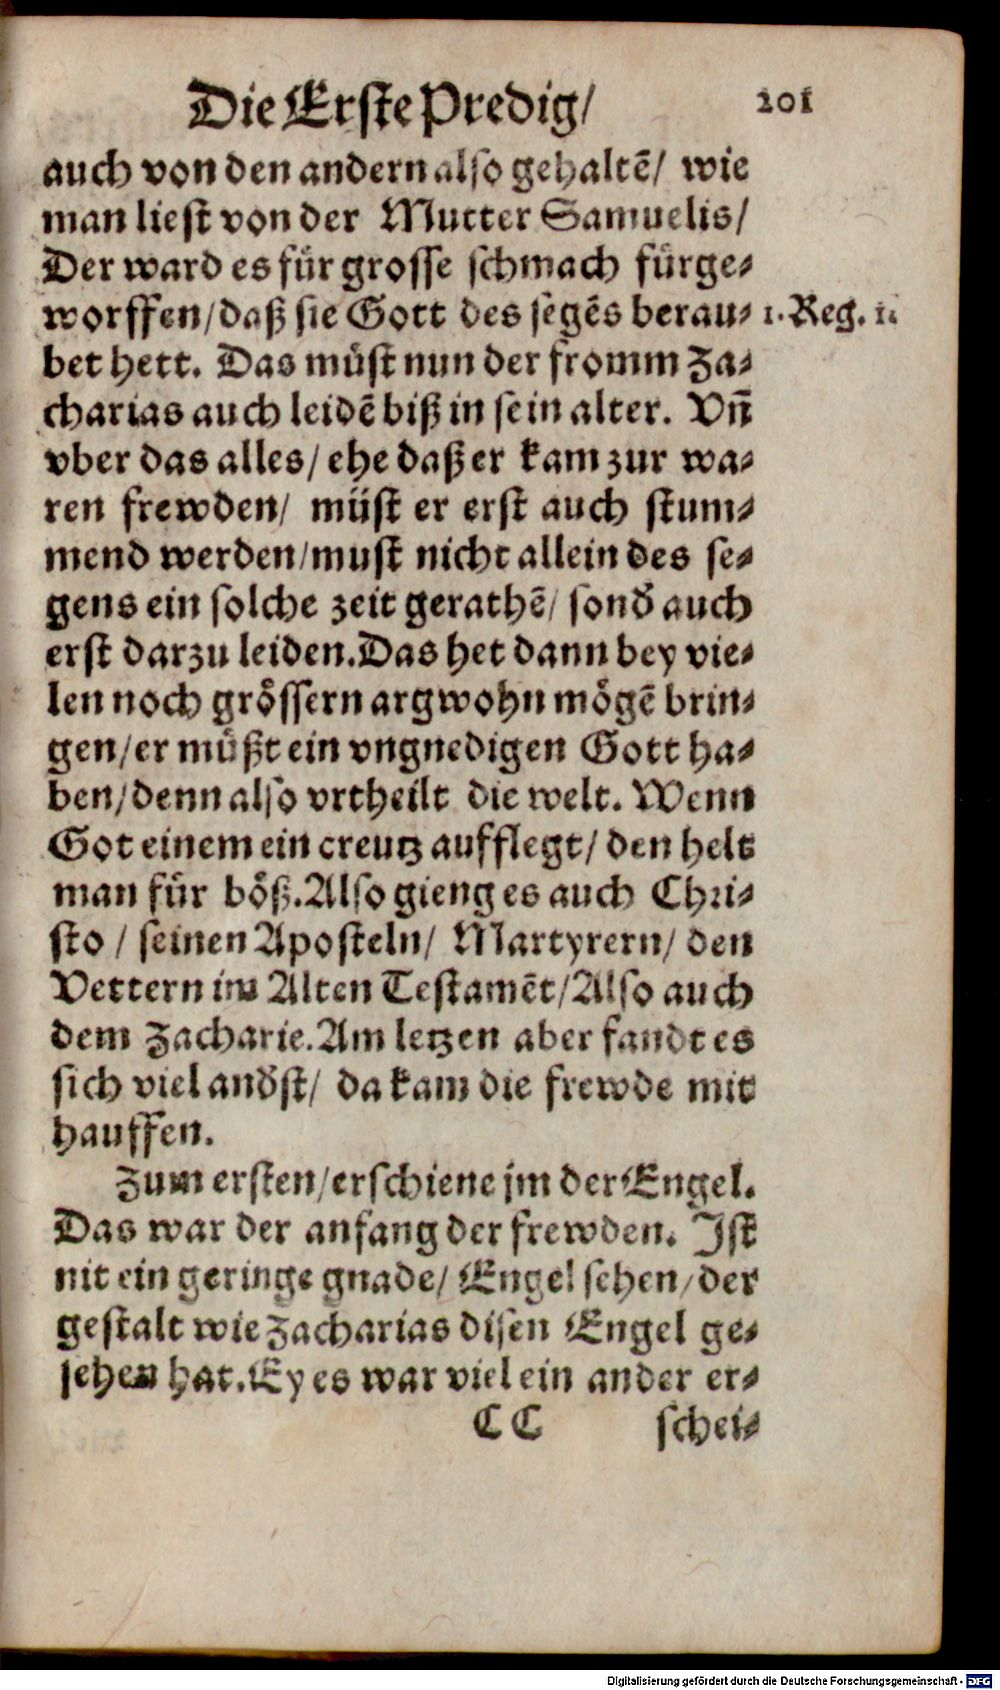 Die Erste Predig/ 201
auch von den andern also gehaltē/ wie
man liest von der Mutter Samuelis/
Der ward es für grosse schmach fürge-
worffen/daß sie Gott des segēs berau- 1. Reg. 1.
bet hett. Das müst nun der fromm Za-
charias auch leidē biß in sein alter. Vñ
vber das alles/ ehe daß er kam zur wa-
ren frewden/ müst er erst auch stum-
mend werden/must nicht allein des se-
gens ein solche zeit gerathē/ sonď auch
erst darzu leiden. Das het dann bey vie-
len noch grössern argwohn mögē brin-
gen/er müßt ein vngnedigen Gott ha-
ben/denn also vrtheilt die welt. Wenn
Got einem ein creutz aufflegt/ den helt
man für böß. Also gieng es auch Chri-
sto / seinen Aposteln/ Martyrern/ den
Vettern im Alten Testamēt/Also auch
dem Zacharie. Am letzen aber fandt es
sich viel anďst/ da kam die frewde mit
hauffen.
Zum ersten/erschiene jm der Engel.
Das war der anfang der frewden. Ist
nit ein geringe gnade/ Engel sehen/der
gestalt wie Zacharias disen Engel ge-
sehen hat. Ey es war viel ein ander er-
CC schei-
Digitalisierung gefördert durch die Deutsche Forschungsgemeinschaft - DFG